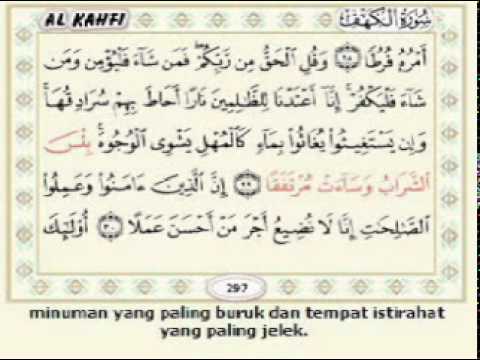 AL KAHFI سُورَةُ الْكَهْفِ
أَمْرُهُ فُرُطًا ۝٢٨ وَقُلِ الْحَقُّ مِن رَّبِّكُمْ ۖ فَمَن شَاءَ فَلْيُؤْمِن وَمَن
شَاءَ فَلْيَكْفُرْ ۚ إِنَّا أَعْتَدْنَا لِلظَّالِمِينَ نَارًا أَحَاطَ بِهِمْ سُرَادِقُهَا ۚ
وَإِن يَسْتَغِيثُوا يُغَاثُوا بِمَاءٍ كَالْمُهْلِ يَشْوِي الْوُجُوهَ ۚ بِئْسَ
الشَّرَابُ وَسَاءَتْ مُرْتَفَقًا ۝٢٩ إِنَّ الَّذِينَ ءَامَنُوا وَعَمِلُوا
الصَّالِحَاتِ إِنَّا لَا نُضِيعُ أَجْرَ مَنْ أَحْسَنَ عَمَلًا ۝٣٠ أُولَٰئِكَ
297
minuman yang paling buruk dan tempat istirahat
yang paling jelek.